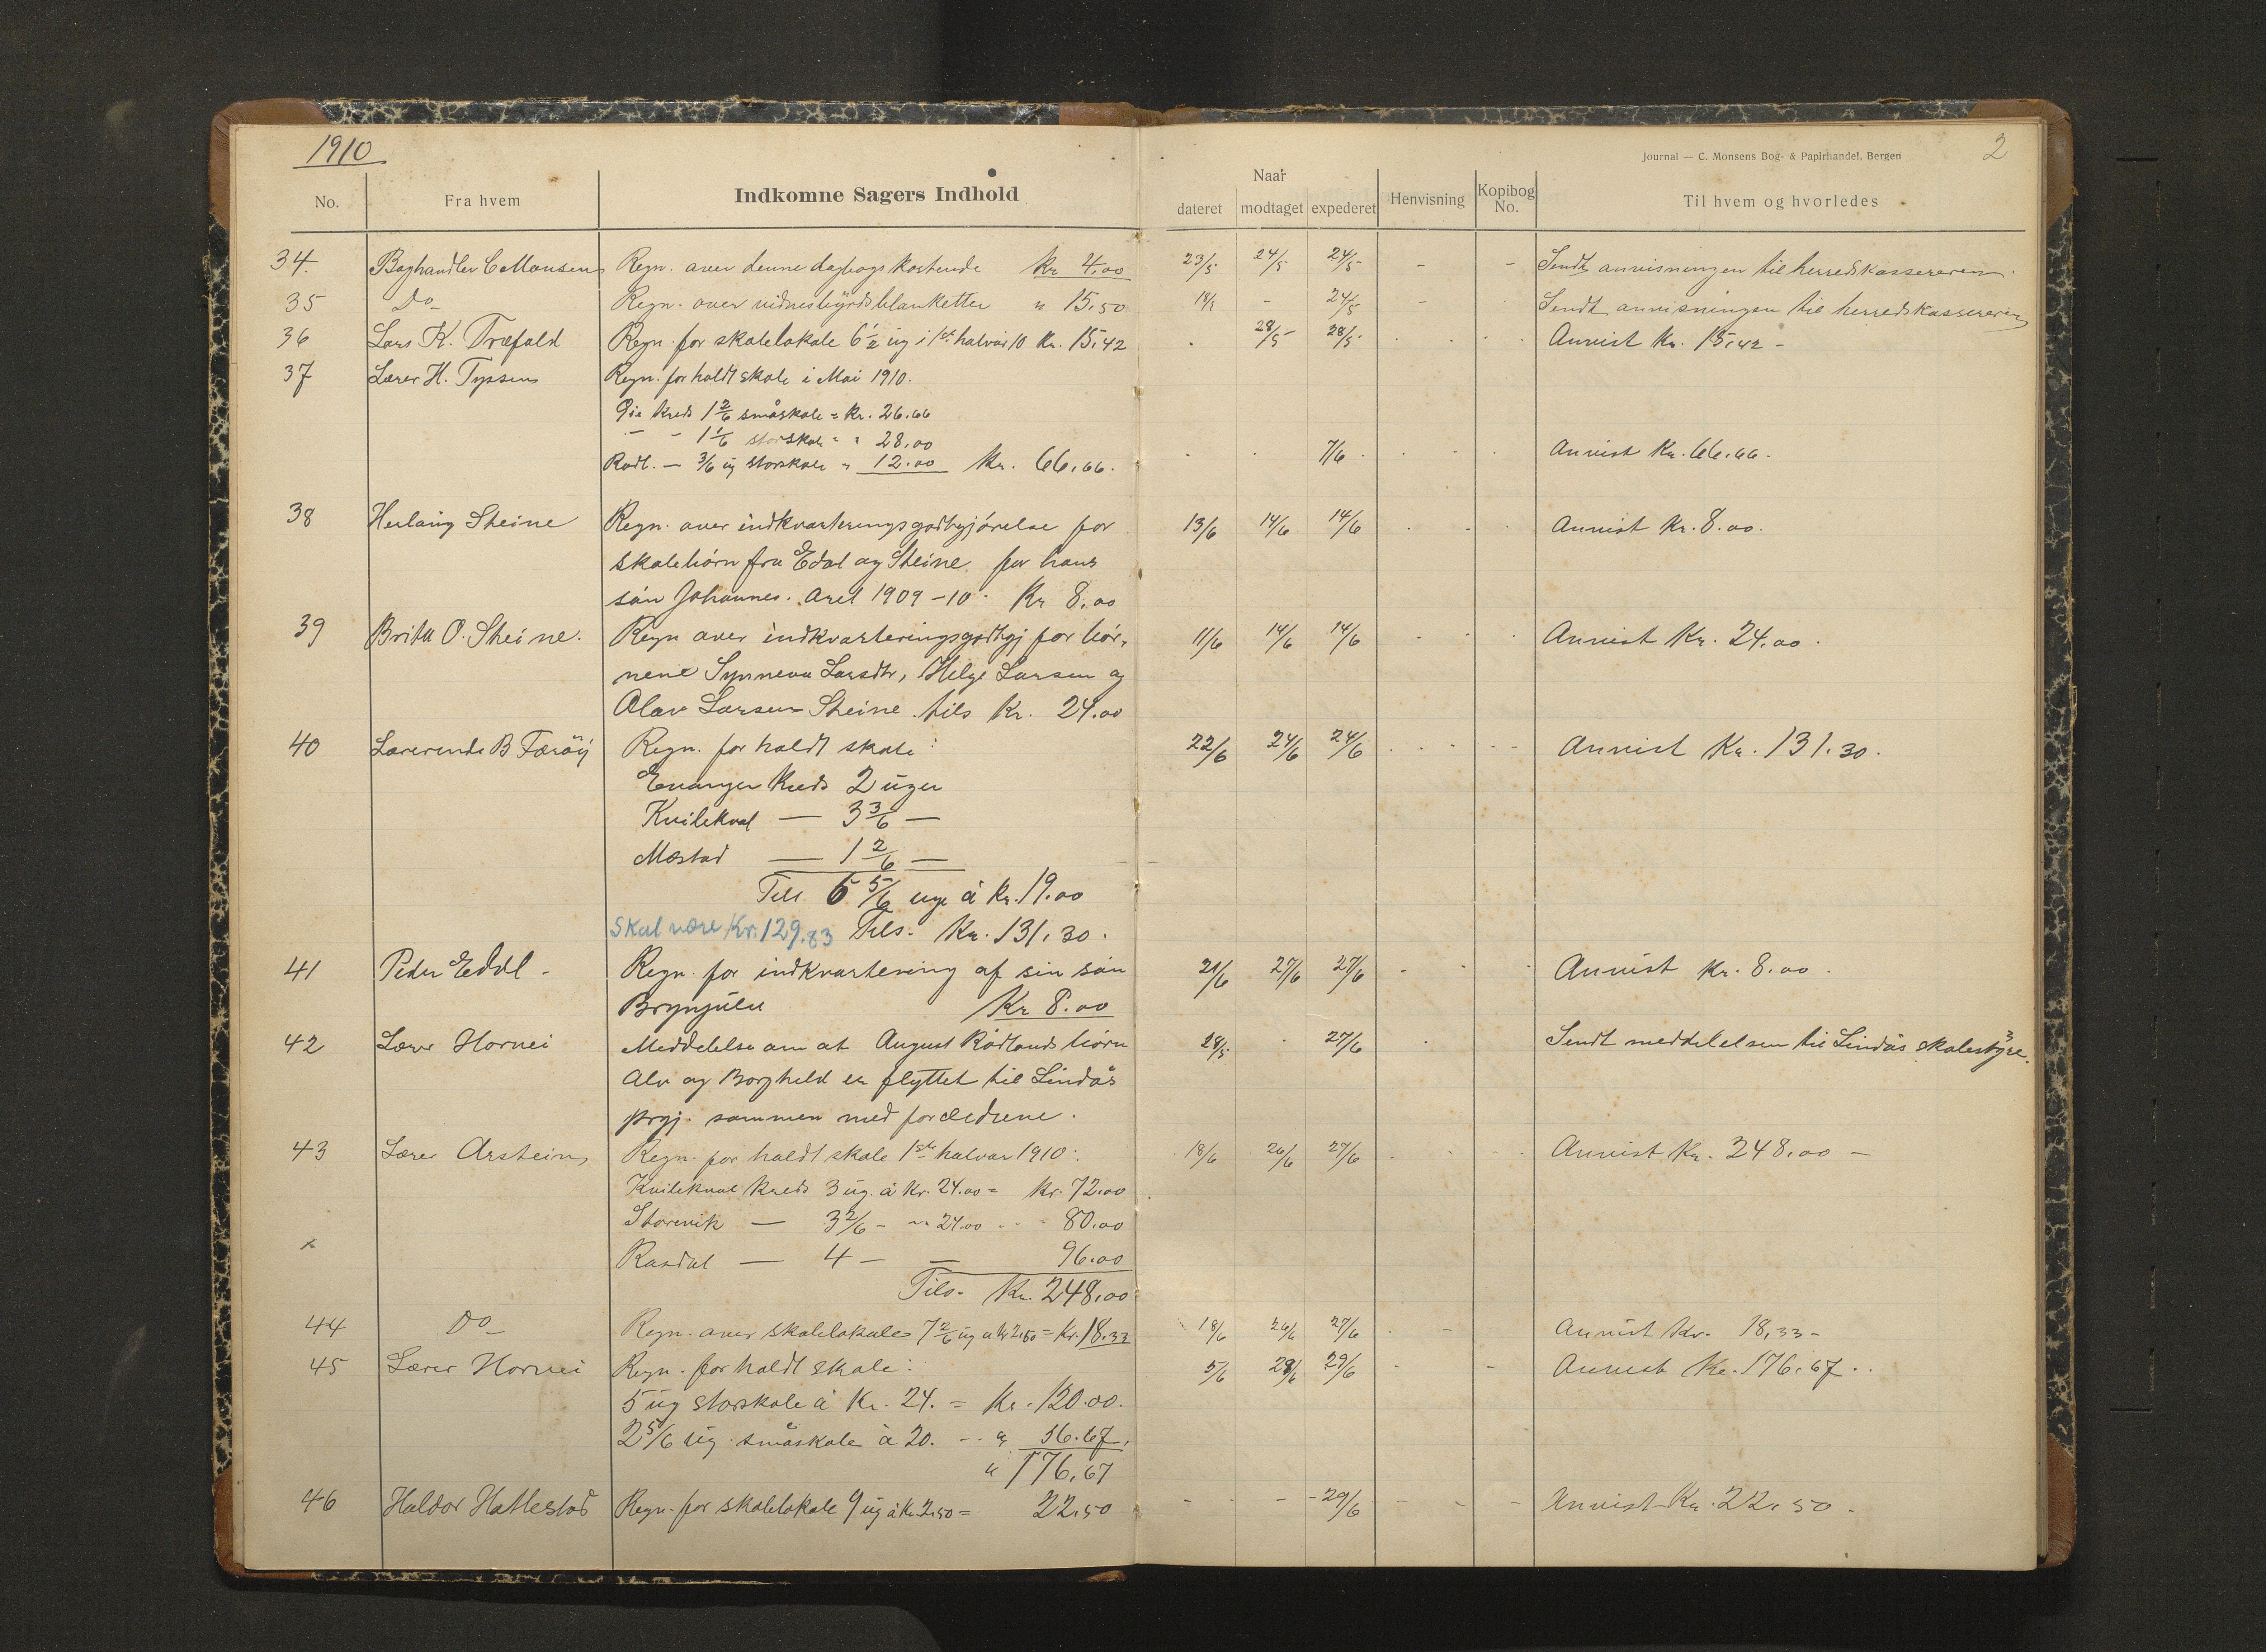 1910
2
Journal — C. Monsens Bog- & Papirhandel, Bergen
No. Fra hvem Indkomne Sagers Indhold Naar dateret modtaget expederet Henvisning Kopibog No. Til hvem og hvorledes
34. Boghandler C Monsens Regn. over denne dagbogs kostende Kr 4.00 23/5 24/5 24/5 - - Sendt anvisningen til herredskassereren.
35 Do Regn. over vidnesbyrdsblanketter " 15.50 18/5 - 24/5 - Sendt anvisningen til herredskassereren
36 Lars K. Træfald Regn. for skolelokale 6 1/2 ug i 1ste halvår 10 Kr. 15,42 28/5 28/5 Anvist Kr. 15,42 -
37 Lærer H. Tyssen Regn. for holdt skole i Mai 1910.
Øie Kreds 1 2/6 småskole = Kr. 26.66
- - 1 1/6 storskole " " 28.00
Rødl. — 3/6 ug storskole " 12.00 Kr. 66,66. 7/6 Anvist Kr. 66,66.
38 Herlaug Steine Regn. over indkvarteringsgodtgjörelse for 13/6 14/6 14/6 Anvist Kr. 8.00.
skolebörn fra Edal og Steine for hans
sön Johannes. Aret 1909-10. Kr 8.00
39 Brita O. Steine. Regn over indkvarteringsgodtgj for bör- 11/6 14/6 14/6 Anvist Kr. 24.00.
nene Synneva Larsdtr, Helge Larsen og
Olav Larsen Steine tils Kr. 24.00
40 Lærerinde B Færöy Regn. for holdt skole: 22/6 24/6 24/6 Anvist Kr. 131.30.
Evanger Kreds 2 uger
Kvilekval — 3 3/6 —
Mestad — 1 2/6 —
Tils 6 5/6 uge à Kr. 19.00
Skal være Kr. 129.83 Tils. Kr. 131,30.
41 Peder Edal - Regn. for indkvartering af sin sön 21/6 27/6 27/6 - Anvist Kr. 8.00.
Brynjulv Kr 8.00
42 Lærer Hornei Meddelelse om at August Rödlands börn 28/5 27/6 Sendt meddelelsen til Lindås skolestyre.
Alv og Borghild er flyttet til Lindås
prgj. sammen med forældrene.
43 Lærer Arstein Regn. for holdt skole 1ste halvår 1910: 18/6 26/6 27/6 Anvist Kr. 248.00 -
Kvilekval Kreds 3 ug. à Kr. 24.00 = Kr. 72.00
Storevik — 3 2/6 - " 24.00 80.00
Rasdal — 4 - — 96.00
Tils. Kr. 248,00
44 Do Regn. over skolelokale 7 2/6 ug à Kr 2.50 = Kr. 18.33 18/6 26/6 27/6 Anvist Kr. 18,33 -
45 Lærer Hornei Regn. for holdt skole: 5/6 28/6 29/6 - - Anvist Kr. 176.67..
5 ug storskole à Kr. 24. = Kr. 120.00.
2 5/6 ug småskole à 20. - " 56.67.
" 176,67
46 Haldor Hatlestad Regn. for skolelokale 9 ug à Kr. 2.50 = 22.50 29/6 Anvist Kr. 22.50 -